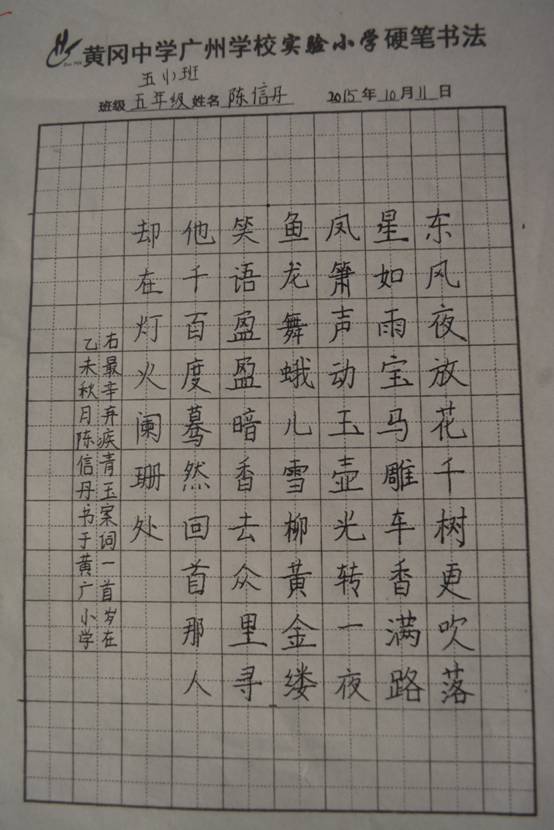 黄冈中学广州学校实验小学硬笔书法
五(1)班
班级 五年级 姓名 陈信丹 2015年10月11日
东风夜放花千树更吹落
星如雨宝马雕车香满路
凤箫声动玉壶光转一夜
鱼龙舞蛾儿雪柳黄金缕
笑语盈盈暗香去众里寻
他千百度蓦然回首那人
却在灯火阑珊处
右最辛弃疾青玉案词一首岁在
乙未秋月陈信丹书于黄广小学